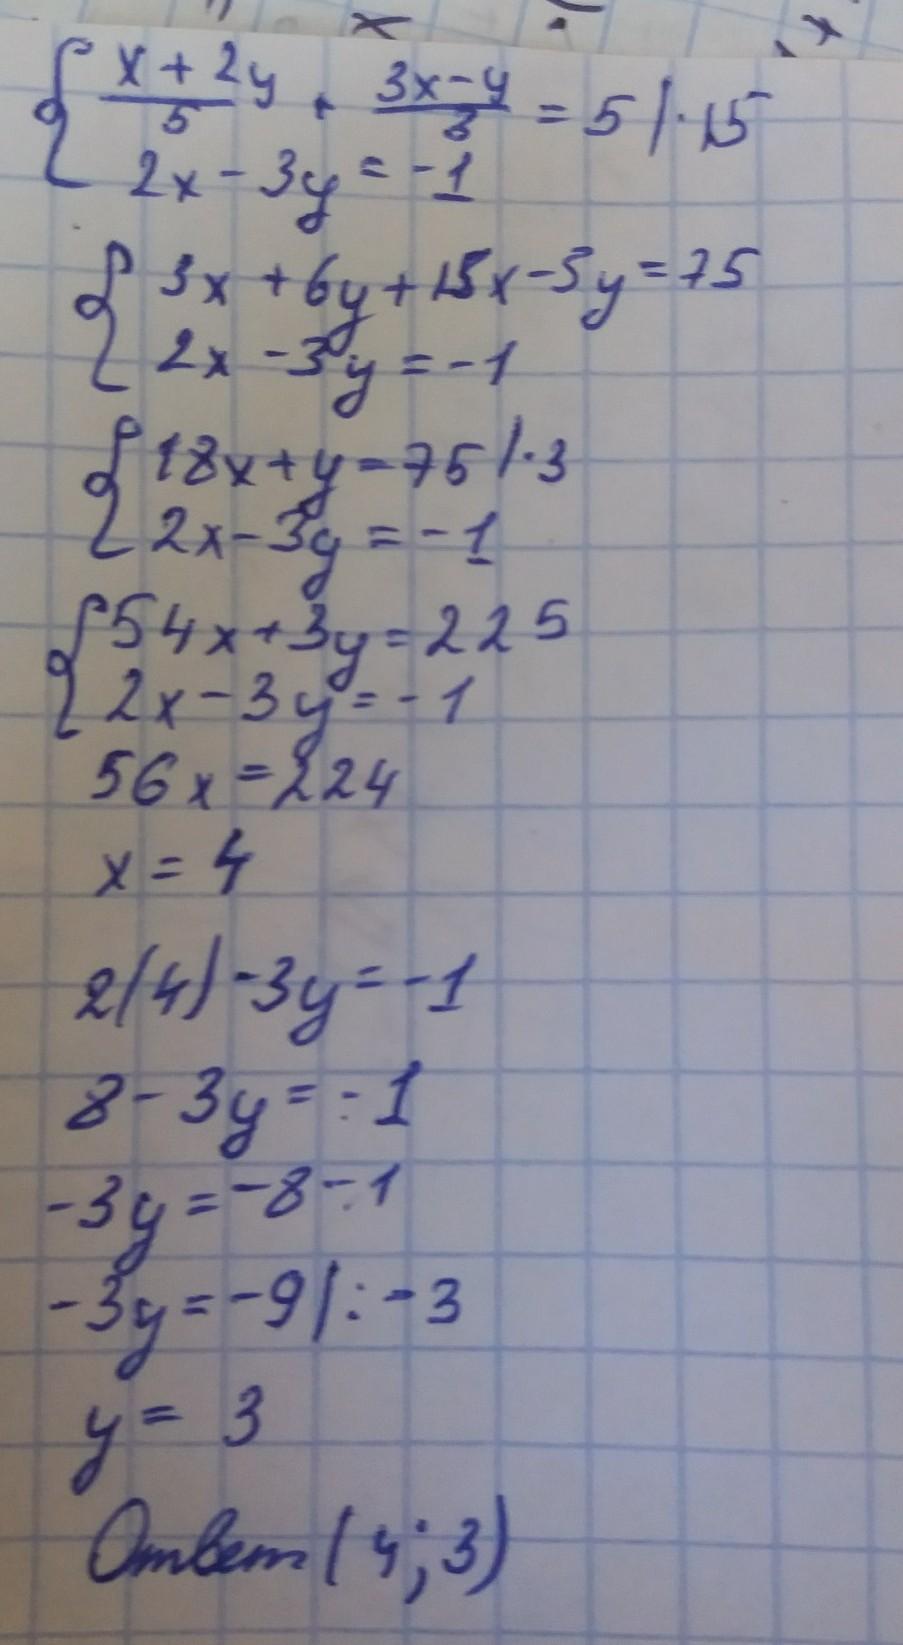 { (x + 2y)/5 + (3x - y)/3 = 5 | · 15
2x - 3y = -1
{ 3x + 6y + 15x - 5y = 75
2x - 3y = -1
{ 18x + y = 75 | · 3
2x - 3y = -1
{ 54x + 3y = 225
2x - 3y = -1
56x = 224
x = 4
2(4) - 3y = -1
8 - 3y = -1
-3y = -8 - 1
-3y = -9 | : -3
y = 3
Ответ (4; 3)